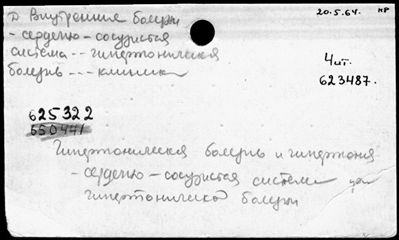 Д Внутренние болезни
20.5.64. НР
- сердечно-сосудистая
система -- гипертоническая
болезнь --- клиника
Чит.
623487.
625322
550471
Гипертоническая болезнь и гипертония
- сердечно-сосудистая система при
гипертонической болезни